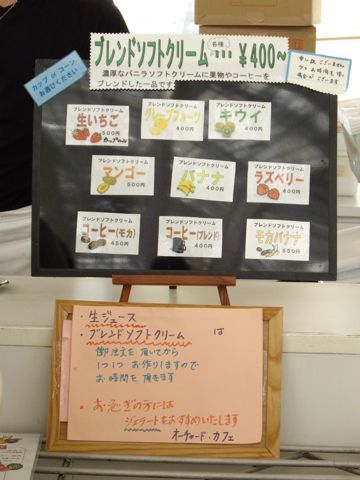 カップ or コーン
お選びください
ブレンドソフトクリーム 各種 ・・・ ¥400~
濃厚なバニラソフトクリームに果物やコーヒーを
ブレンドした一品です
申し訳ございません
ブレンドソフトクリーム
生いちご
500円
カップのみ
ブレンドソフトクリーム
グレープフルーツ
400円
ブレンドソフトクリーム
キウイ
400円
ブレンドソフトクリーム
マンゴー
500円
ブレンドソフトクリーム
バナナ
400円
ブレンドソフトクリーム
ラズベリー
400円
ブレンドソフトクリーム
コーヒー(モカ)
450円
ブレンドソフトクリーム
コーヒー(ブレンド)
400円
ブレンドソフトクリーム
モカバナナ
500円
・生ジュース
・ブレンドソフトクリーム は
御注文を頂いてから
1つ1つ お作りしますので
お時間を頂きます
・お急ぎの方には
ジェラートをおすすめいたします
オーチャード・カフェ